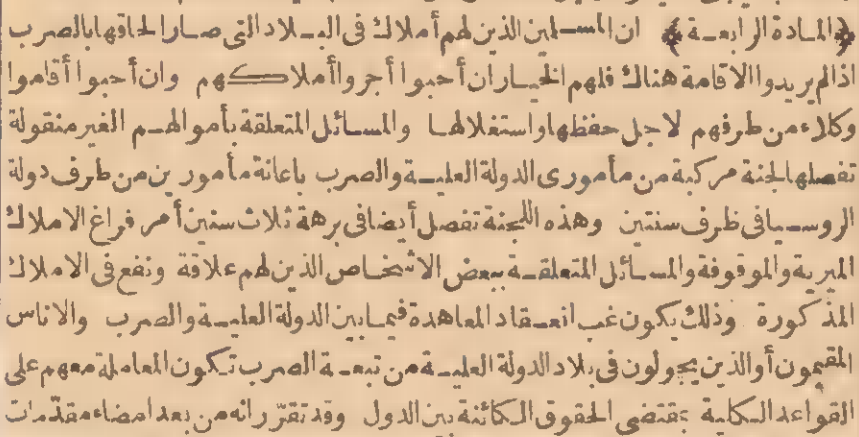 ﴿المادة الرابعة﴾ ان المسلمين الذين لهم أملاك فى البلاد التى صار الحاقها بالصرب
اذا لم يريدوا الاقامة هناك فلهم الخيار ان أحبوا أجروا أملاكهم وان أحبوا أقاموا
وكلاء من طرفهم لاجل حفظها واستغلالها والمسائل المتعلقة بأموالهم الغير منقولة
تفصلها لجنة مركبة من مأمورى الدولة العلية والصرب باعانة مأمورين من طرف دولة
الروسيا فى ظرف سنتين وهذه اللجنة تفصل أيضا فى برهة ثلاث سنين أمر فراغ الاملاك
الميرية والموقوفة والمسائل المتعلقة ببعض الاشخاص الذين لهم علاقة ونفع فى الاملاك
المذكورة وذلك يكون غب انعقاد المعاهدة فيما بين الدولة العلية والصرب والاناس
المقيمون أو الذين يجولون فى بلاد الدولة العلية من تبعة الصرب تكون المعاملة معهم على
القواعد الكلية بمقتضى الحقوق الكائنة بين الدول وقد تقرر انه من بعد امضاء مقدمات